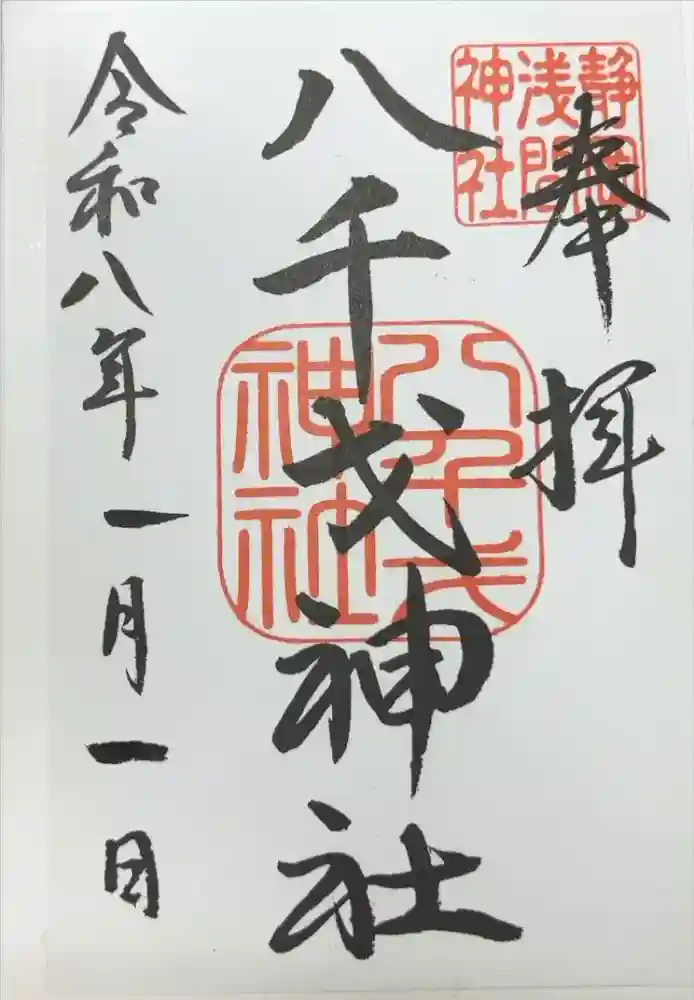 奉拝
静岡
浅間
神社
八千戈神社
八千戈
神社
令和八年一月一日